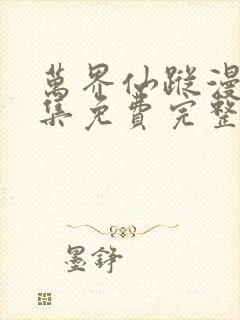 萬界仙蹤漫
集免費完整
墨錚